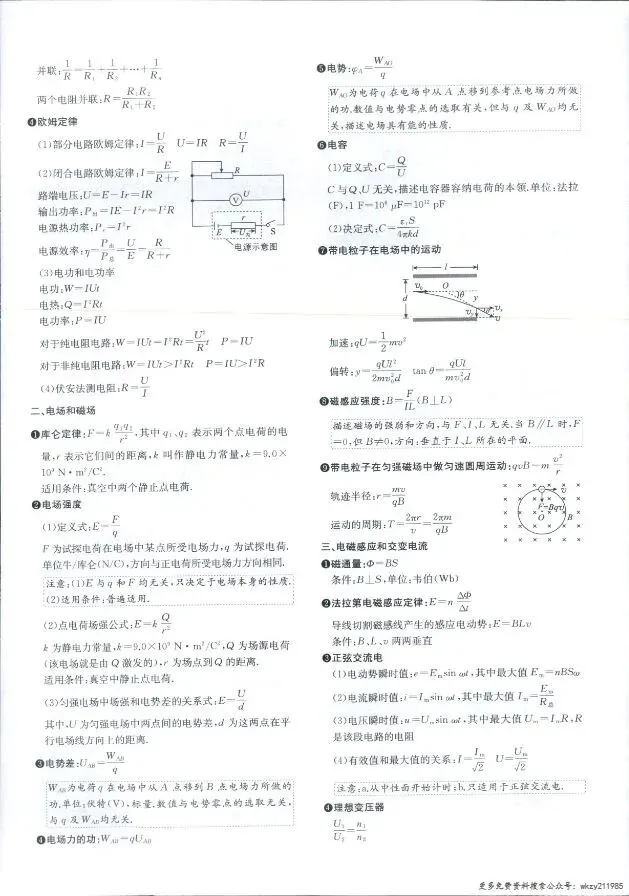 并联:1/R=1/R₁+1/R₂+…+1/Rₙ
两个电阻并联:R=R₁R₂/(R₁+R₂)
❹欧姆定律
(1)部分电路欧姆定律:I=U/R U=IR R=U/I
(2)闭合电路欧姆定律:I=E/(R+r)
路端电压:U=E-Ir=IR
输出功率:P出=IE-I²r=I²R
电源热功率:Pᵣ=I²r
电源效率:η=P出/P总=U/E=R/(R+r)
R
V
U
r
E
U内
S
电源示意图
(3)电功和电功率
电功:W=IUt
电热:Q=I²Rt
电功率:P=IU
对于纯电阻电路:W=IUt=I²Rt=U²/R t P=IU
对于非纯电阻电路:W=IUt>I²Rt P=IU>I²R
(4)伏安法测电阻:R=U/I
二、电场和磁场
❶库仑定律:F=k q₁q₂/r²,其中q₁、q₂表示两个点电荷的电
量,r表示它们间的距离,k叫作静电力常量,k=9.0×
10⁹ N·m²/C².
适用条件:真空中两个静止点电荷.
❷电场强度
(1)定义式:E=F/q
F为试探电荷在电场中某点所受电场力,q为试探电荷.
单位牛/库仑(N/C),方向与正电荷所受电场力方向相同.
注意:(1)E与q和F均无关,只决定于电场本身的性质.
(2)适用条件:普遍适用.
(2)点电荷场强公式:E=k Q/r²
k为静电力常量,k=9.0×10⁹ N·m²/C²,Q为场源电荷
(该电场就是由Q激发的),r为场点到Q的距离.
适用条件:真空中静止点电荷.
(3)匀强电场中场强和电势差的关系式:E=U/d
其中,U为匀强电场中两点间的电势差,d为这两点在平
行电场线方向上的距离.
❸电势差:U_AB=W_AB/q
W_AB为电荷q在电场中从A点移到B点电场力所做的
功.单位:伏特(V),标量.数值与电势零点的选取无关,
与q及W_AB均无关.
❹电场力的功:W_AB=qU_AB
❺电势:φ_A=W_AO/q
W_AO为电荷q在电场中从A点移到参考点电场力所做
的功.数值与电势零点的选取有关,但与q及W_AO均无
关,描述电场具有能的性质.
❻电容
(1)定义式:C=Q/U
C与Q、U无关,描述电容器容纳电荷的本领.单位:法拉
(F),1 F=10⁶ μF=10¹² pF
(2)决定式:C=εᵣS/4πkd
❼带电粒子在电场中的运动
l
d
v₀
O
θ
y
加速:qU=1/2 mv²
偏转:y=qUl²/2mv₀²d tan θ=qUl/mv₀²d
❽磁感应强度:B=F/IL(B⊥L)
描述磁场的强弱和方向,与F、I、L无关.当B∥L时,F
=0,但B≠0,方向:垂直于I、L所在的平面.
❾带电粒子在匀强磁场中做匀速圆周运动:qvB=m v²/r
轨迹半径:r=mv/qB
运动的周期:T=2πr/v=2πm/qB
v
F=Bqv
O
B
三、电磁感应和交变电流
❶磁通量:Φ=BS
条件:B⊥S,单位:韦伯(Wb)
❷法拉第电磁感应定律:E=n ΔΦ/Δt
导线切割磁感线产生的感应电动势:E=BLv
条件:B、L、v两两垂直
❸正弦交流电
(1)电动势瞬时值:e=Eₘsin ωt,其中最大值Eₘ=nBSω
(2)电流瞬时值:i=Iₘsin ωt,其中最大值Iₘ=Eₘ/R总
(3)电压瞬时值:u=Uₘsin ωt,其中最大值Uₘ=IₘR,R
是该段电路的电阻
(4)有效值和最大值的关系:I=Iₘ/√2 U=Uₘ/√2
注意:a.从中性面开始计时;b.只适用于正弦交流电.
❹理想变压器
U₁/U₂=n₁/n₂
更多免费资料搜索公众号: wkzy211985